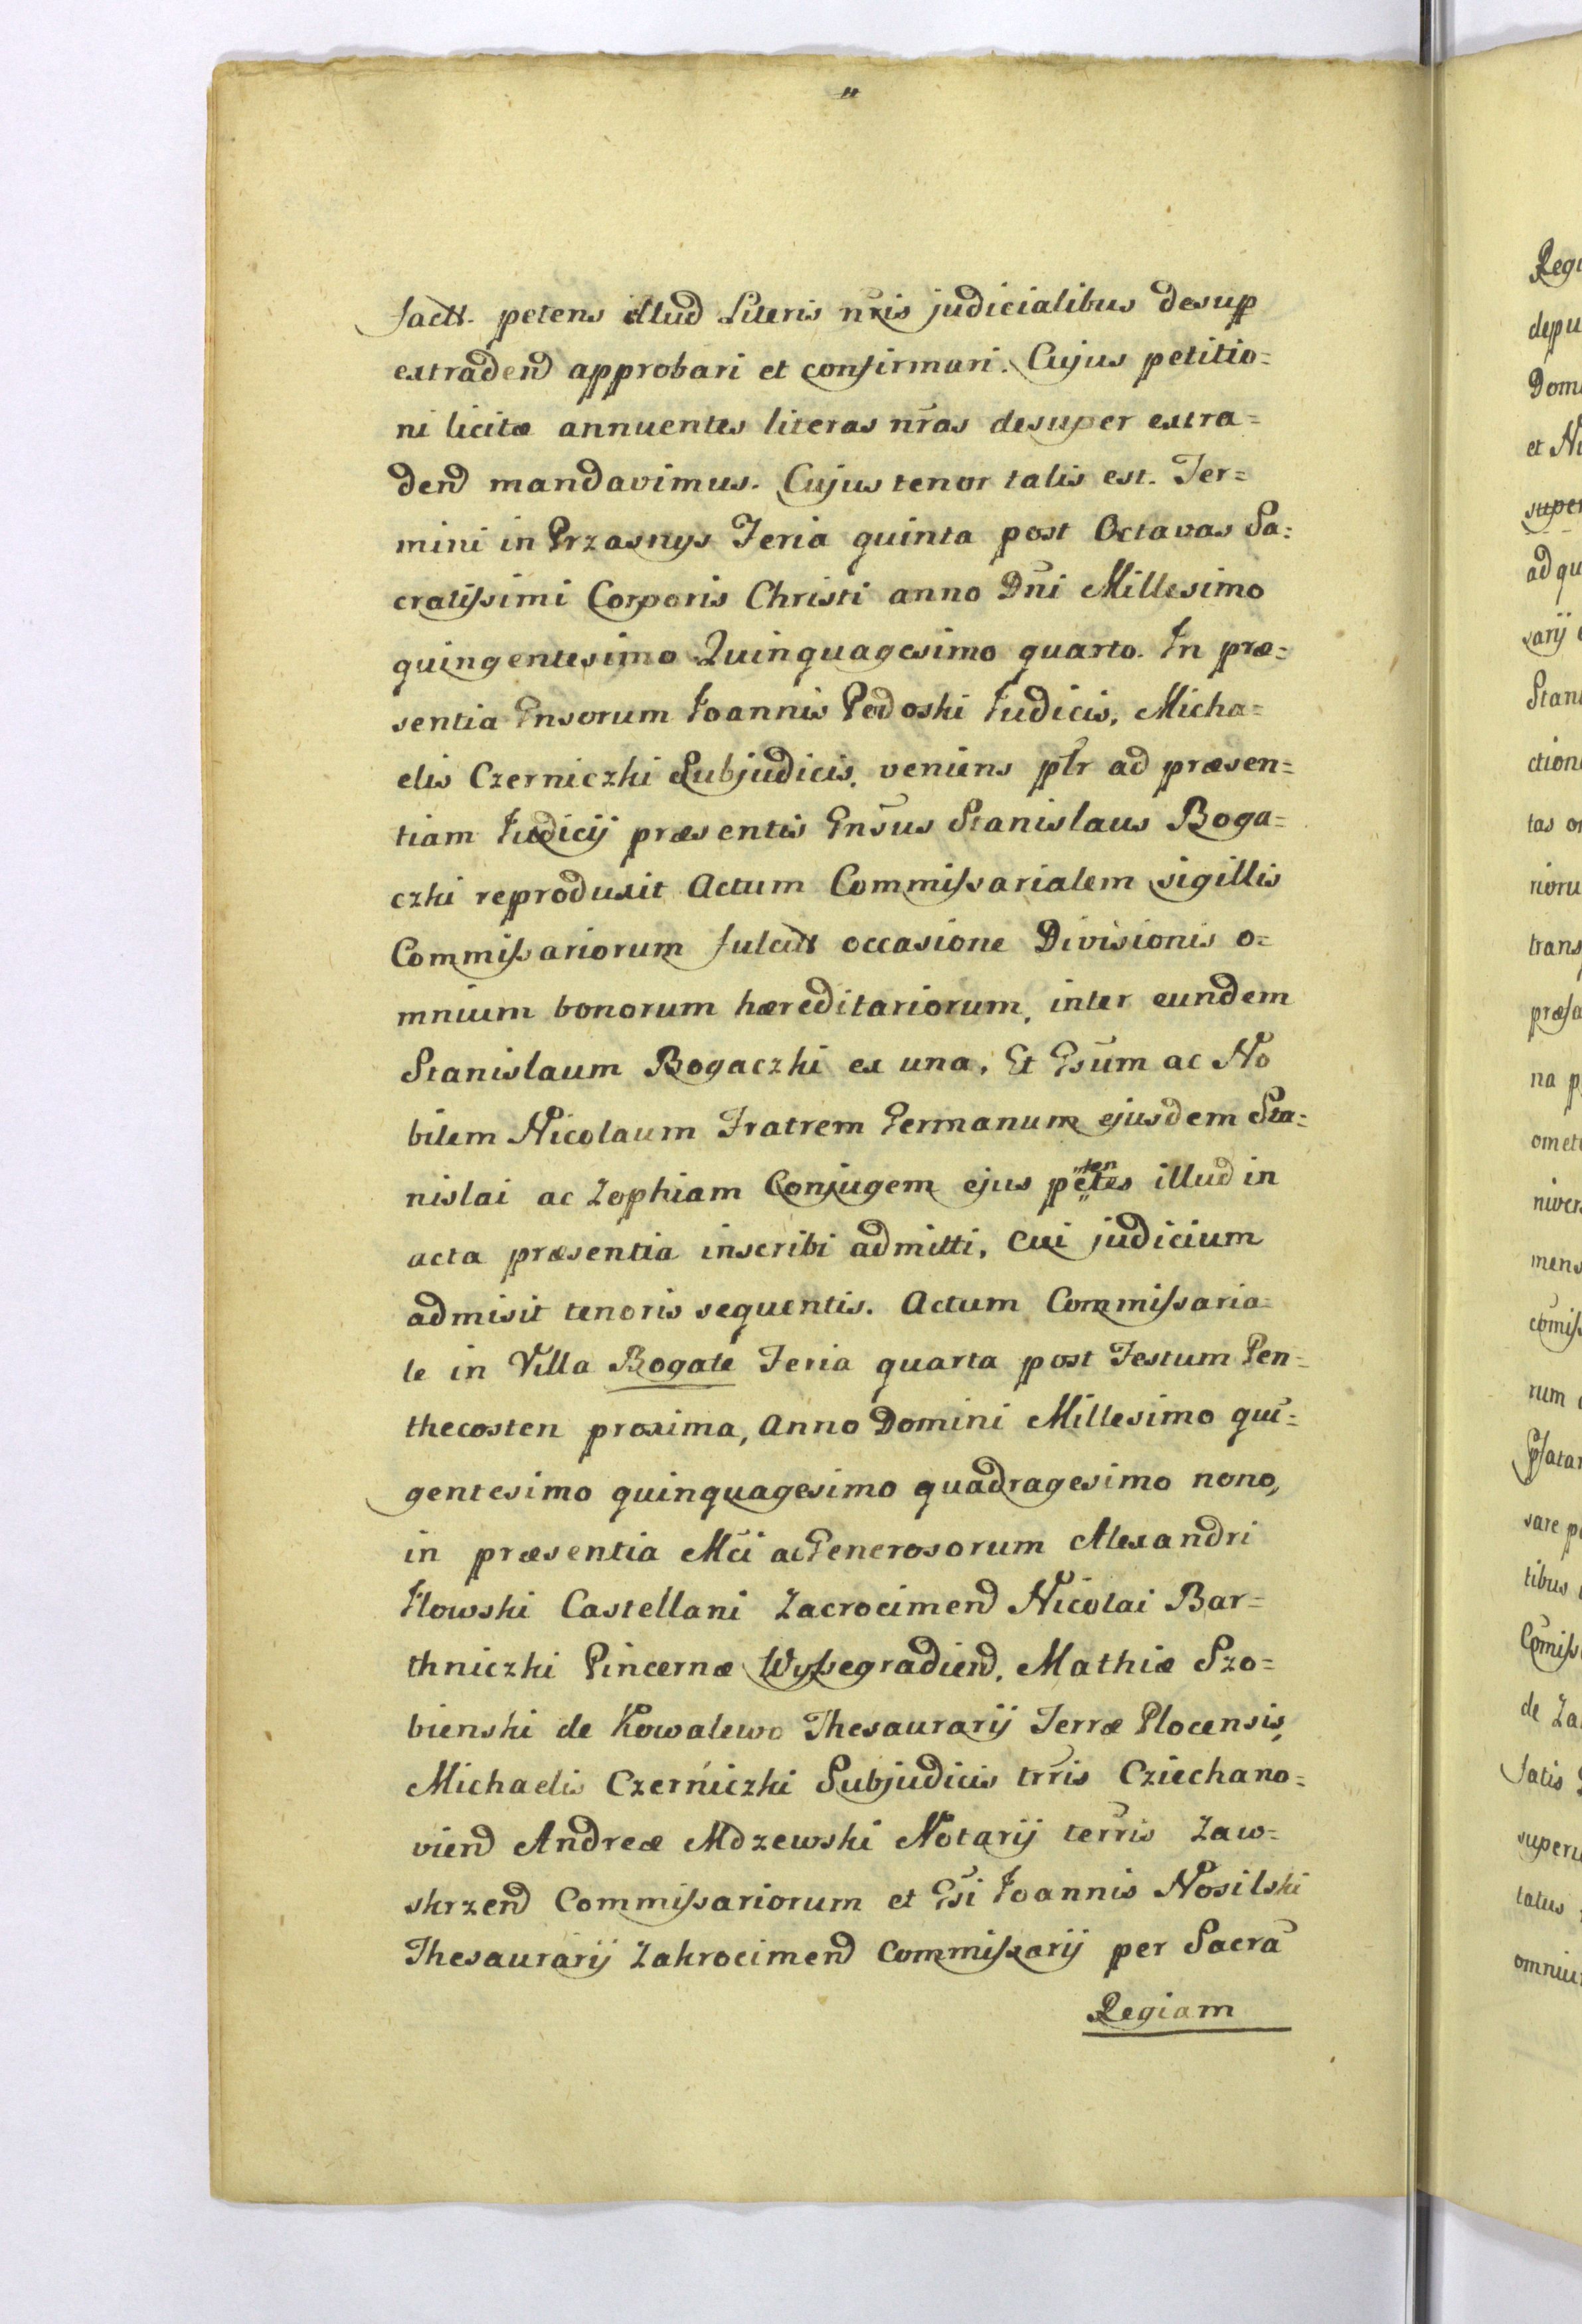 fact. petens illud Literis nr̃is judicialibus desup
extradend approbari et confirmari. Cujus petitio=
ni licitæ annuentes literas nr̃as desuper extra=
dend mandavimus. Cujus tenor talis est. Ter=
mini in Przasnys Feria quinta post Octavas Sa=
cratissimi Corporis Christi anno Dñi Millesimo
quingentesimo Quinquagesimo quarto. In præ=
sentia Gnsorum Joannis Podoski Judicis, Micha=
elis Czerniczki Subjudicis, veniens ptr ad præsen=
tiam Judicij præsentis Gnsus Stanislaus Boga=
czki reproduxit Actum Commissarialem sigillis
Commissariorum fulcit occasione Divisionis o=
mnium bonorum hæreditariorum, inter eundem
Stanislaum Bogaczki ex una, Et Gsum ac No
bilem Nicolaum Fratrem Germanum ejusdem Sta=
nislai ac Zophiam Conjugem ejus petes ten illud in
acta præsentia inscribi admitti, cui judicium
admisit tenoris sequentis. Actum Commissaria=
le in Villa Bogate Feria quarta post Festum Pen=
thecosten proxima, Anno Domini Millesimo qui=
gentesimo quinquagesimo quadragesimo nono,
in præsentia Mci ac Generosorum Alexandri
Ilowski Castellani Zacrocimend Nicolai Bar=
thniczki Pincernæ Wyssegradiend, Mathiæ Szo=
bienski de Kowalewo Thesaurarij Terræ Plocensis,
Michaelis Czerniczki Subjudicis trris Cziechano=
viend Andreæ Mdzewski Notarij terris Zaw=
skrzend Commissariorum et Gsi Joannis Nosilski
Thesaurarij Zakrocimend Commissarij per Sacrã
Regiam